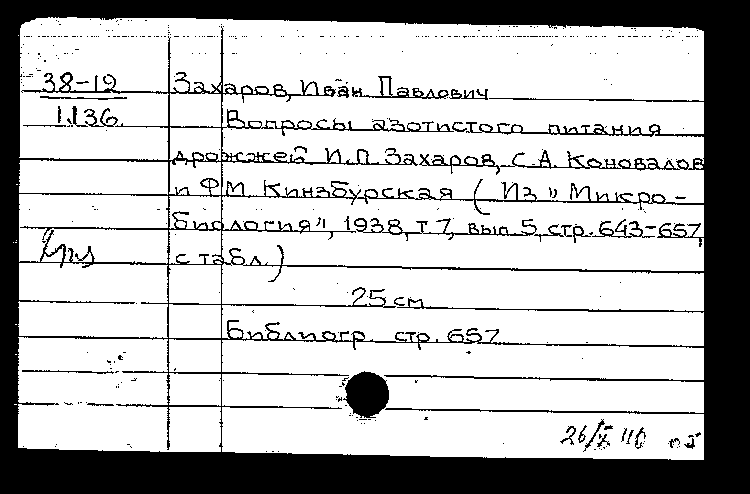 38-12 Захаров, Иван Павлович
1136. Вопросы азотистого питания
дрожжей И.П. Захаров, С.А. Коновалов
и Ф.М. Кинзбурская (Из "Микро-
биология", 1938, т. 7, вып. 5, стр. 643-657,
с табл.)
25 см
Библиогр. стр. 657
26/X